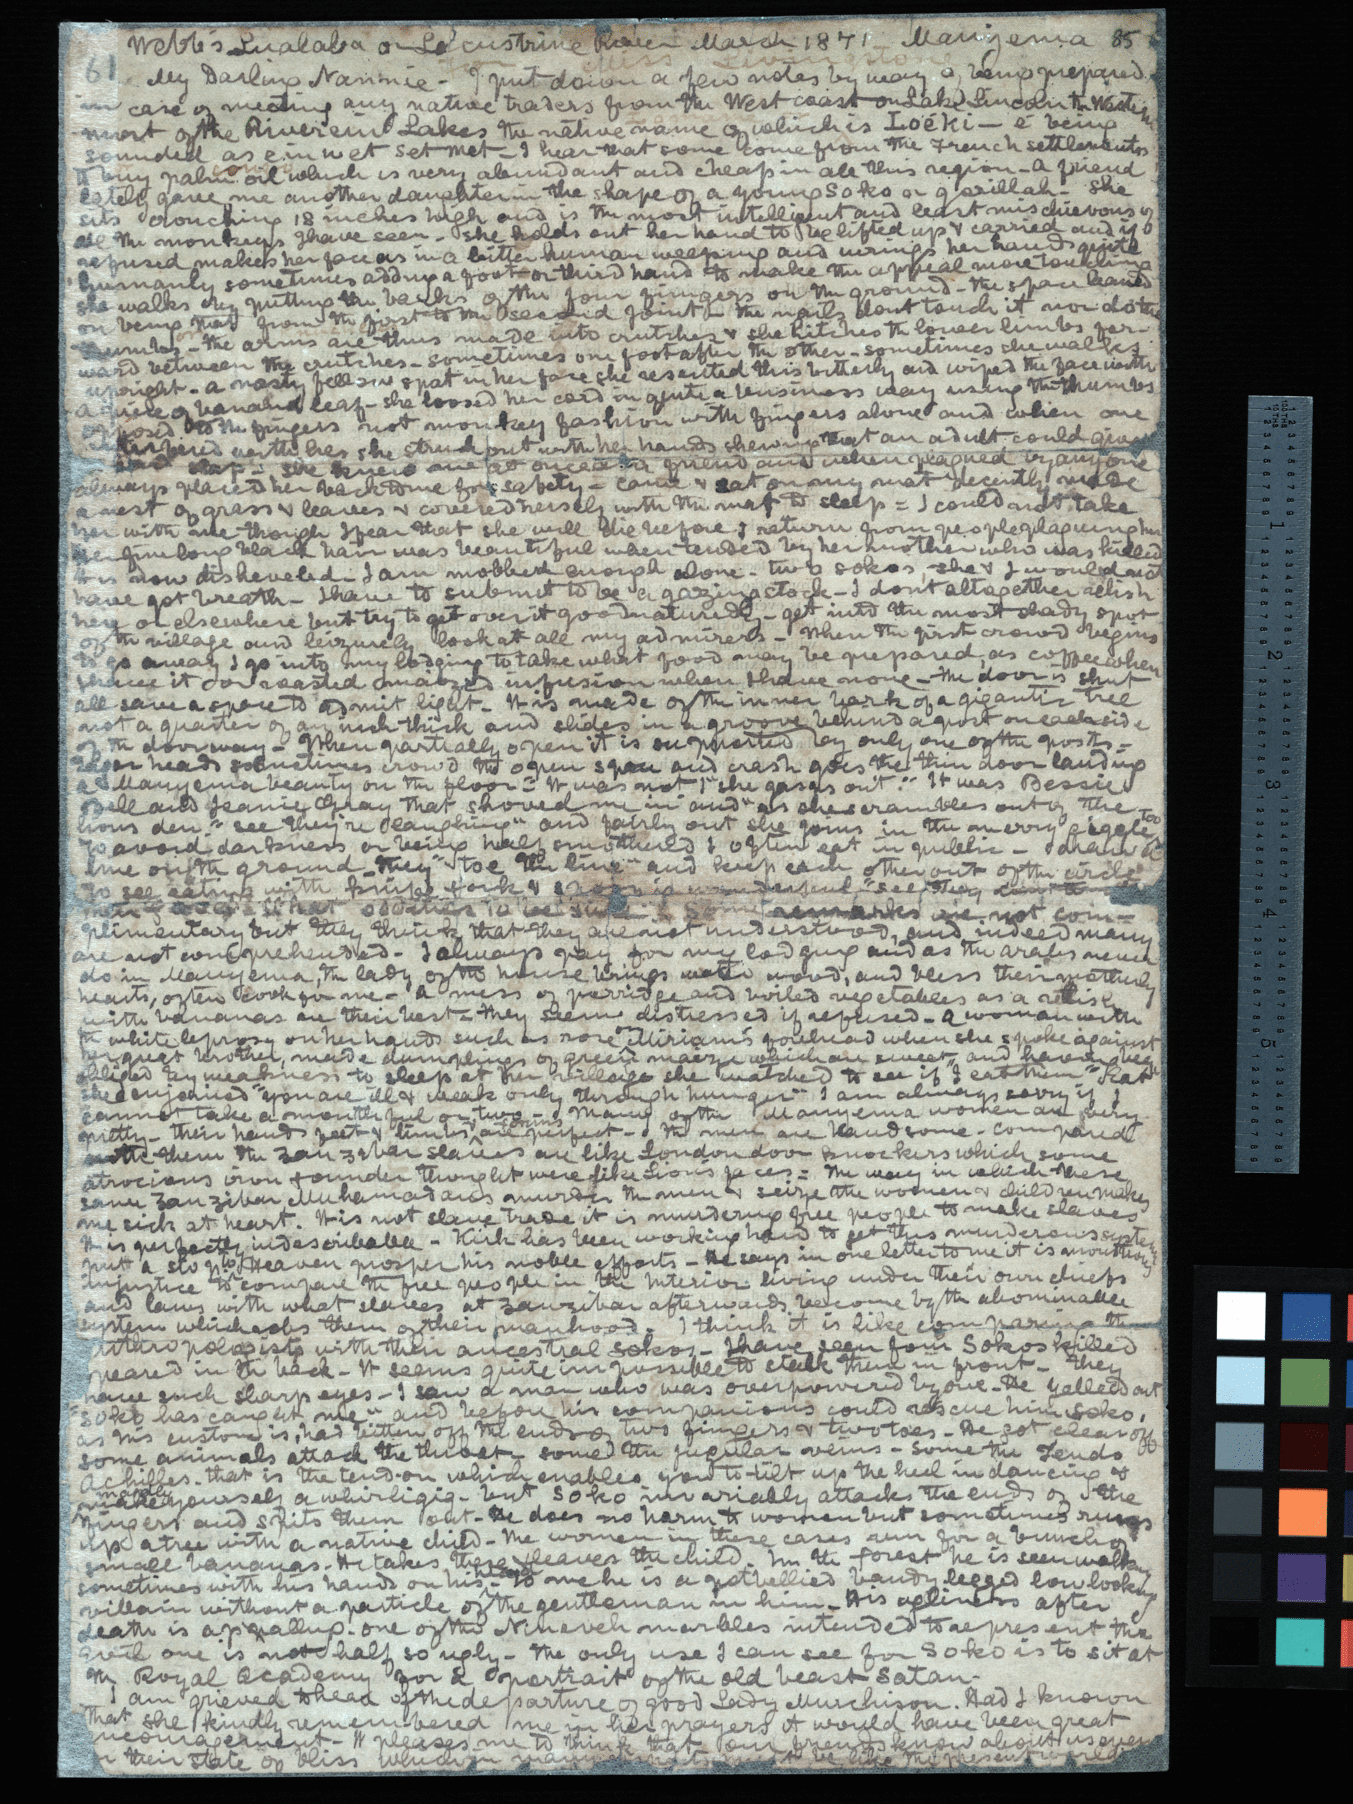 Webb's Lualaba or Lacustrine River March 1871 Manyema 85
61 Miss Livingstone
My Darling Nannie - I put down a few notes by way of being prepared
in case of meeting any native traders from the West coast on Lake Lincoln the Western
most of the Riverein Lakes the native name of which is Loéki - é being
sounded as e in wet set met - I hear that some come from the French settlements
to buy palm oil which is very abundant and cheap in all this region - a friend
lately gave me another daughter in the shape of a young Soko or gorillah - she
sits crouching 18 inches high and is the most intelligent and least mischievous of
all the monkeys I have seen - she holds out her hand to be lifted up & carried and if
refused makes her face as in a bitter human weeping and wrings her hands quite
humanly sometimes adding a foot or third hand to make the appeal more touching
she walks by putting the backs of the four fingers on the ground - the space leaned
on being that from the first to the second joint - the nails dont touch it nor do the
thumbs - the arms are thus made into crutches & she hitches the lower limbs for-
ward between the crutches - sometimes one foot after the other - sometimes she walks
upright - a nasty fellow spat in her face she resented this bitterly and wiped the face with
a piece of banana leaf - she loosed her cord in quite a business way using the thumbs
opposed to the fingers not monkey fashion with fingers alone and when one
interfered with her she struck out with her hands shewing that an adult could give
hard slap - she knew me at once as a friend and when plagued by anyone
always placed her back to me for safety - came & sat on my mat decently made
a nest of grass & leaves & covered herself with the mat to sleep = I could not take
her with me though I fear that she will die before I return from people plaguing her
Her fine long black hair was beautiful when tended by her mother who was killed
it is now disheveled - I am mobbed enough alone - two sokos, she & I would not
have got breath - I have to submit to be a gazingstock - I don't altogether relish
here or elsewhere but try to get over it good naturedly - get into the most shady spot
of the village and leizurely look at all my admirers - When the first crowd begins
to go away I go into my lodging to take what food may be prepared, as coffee when
I have it or roasted maize infusion when I have none - The door is shut
all save a space to admit light - It is made of the inner bark of a gigantic tree
not a quarter of an inch thick and slides in a groove behind a post on each side
of the doorway - When partially open it is supported by only one of the posts -
heads sometimes crowd the open space and crash goes the thin door landing
a Manyema beauty on the floor = "It was not I" she gasps out "It was Bessie
Bell and Jeanie Gray that shoved me in and" as she scrambles out of the
lions den " see they're laughing" and fairly out she joins in the merry giggle too
To avoid darkness or being half smothered I often eat in public - I draw a
line on the ground they "toe the line" and keep each other out of the circle
To see eating with knife fork & spoon is wonderful "see they
what oddities to be sure = some remarks are not com-
plimentary but they think that they are not understood, and indeed many
are not comprehended - I always pay for my lodging and as the arabs never
do in Manyema, the lady of the house brings water wood, and bless their motherly
hearts, often cook for me - a mess of porridge and boiled vegetables as a relish
with bananas are their best = They seem distressed if refused - a woman with
the white leprosy on her hands such as rose on Miriam's forehead when she spoke against
her great brother, made dumplings of green maize which are sweet, and having been
obliged by weakness to sleep at her village she watched to see if I eat them "Eat"
she enjoined "you are ill & weak only through hunger" I am always sorry if I
cannot take a mouthful or two - Many of the Manyema women are very
pretty - their hands feet & limbs & forms are perfect - The men are handsome - compared
with them the Zanzibar slaves are like London door knockers which some
atrocious iron founder thought were like Lions faces = The way in which these
same Zanzibar Muhamadans murder the men & seize the women & children makes
me sick at heart. It is not slave trade it is murdering free people to make slaves
It is perfectly indescribable - Kirk has been working hard to get this murderous system
put a stop to Heaven prosper his noble efforts - He says in one letter to me it is monstrous
injustice to compare the free people in the Interior living under their own chiefs
and laws with what slaves at Zanzibar afterwards become by the abominable
system which robs them of their manhood - I think it is like comparing the
anthropologists with their ancestral sokos - I have seen four Sokos killed
speared in the back - It seems quite impossible to stalk them in front - They
have such sharp eyes - I saw a man who was overpowered by one - He yelled out
"Soko has caught me" and before his companions could rescue him Soko,
as his custom is, had bitten off the ends of two fingers & two toes - He got clear off
some animals attack the throat - some the jugular veins - some the Tendo
Achilles - that is the tendon which enables you to tilt up the heel in dancing &
make yourself a whirligig - but Soko invariably attacks the ends of the
fingers and spits them out - He does no harm to women but sometimes runs
up a tree with a native child - The women in these cases run for a bunch of
small bananas - He takes these & leaves the child. In the forest he is seen walking
sometimes with his hands on his head - To me he is a potbellied bandy legged low looking
villain without a particle of the gentleman in him - His ugliness after
death is appalling - one of the Nineveh marbles intended to represent the
Evil one is not half so ugly - The only use I can see for Soko is to sit at
the Royal Academy for a portrait of the old beast Satan -
I am grieved to hear of the departure of good Lady Murchison. Had I known
that she kindly remembered me in her prayers it would have been great
encouragement - It pleases me to think that our friends know about us even
in their state of bliss which in many respects must be like the present world